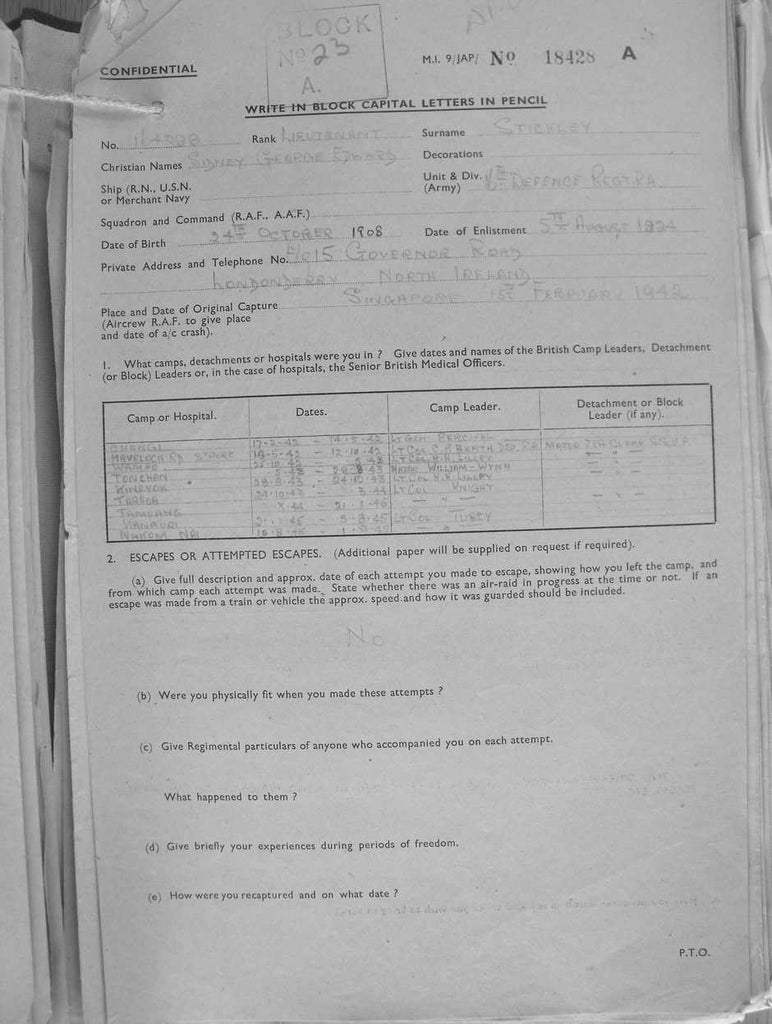 BLOCK
Nº 23
A.
M.I. 9/JAP/ Nº 18428 A
CONFIDENTIAL
WRITE IN BLOCK CAPITAL LETTERS IN PENCIL
No. Rank LIEUTENANT Surname STICKLEY
Christian Names SIDNEY GEORGE EDWARD Decorations
Ship (R.N., U.S.N. or Merchant Navy
Unit & Div. (Army) DEFENCE REGT. RA.
Squadron and Command (R.A.F., A.A.F.)
Date of Birth 24TH OCTOBER 1908 Date of Enlistment 5TH AUGUST
Private Address and Telephone No. GOVERNOR ROAD
LONDONDERRY NORTH IRELAND
Place and Date of Original Capture SINGAPORE 15T FEBRUARY 1942
(Aircrew R.A.F. to give place
and date of a/c crash).
1. What camps, detachments or hospitals were you in ? Give dates and names of the British Camp Leaders, Detachment
(or Block) Leaders or, in the case of hospitals, the Senior British Medical Officers.
Camp or Hospital. Dates. Camp Leader. Detachment or Block Leader (if any).
CHANGI 17-2-42 - 14-5-42 LT GEN PERCIVAL
HAVELOCK RD 14-5-42 - 12-10-42 LT COL
WAMPO LT COL LILLEY
TONCHAN 28-8-43 MAJOR WILLIAM-WYNN
KINSYOK 28-8-43 - 24-10-43 LT COL LILLEY
TARSOA 24-10-43 - 3-44 LT COL KNIGHT
TAMUANG 3-44 - 21-1-45
KANBURI 21-1-45 - 5-8-45 LT COL
NAKOM NAI
2. ESCAPES OR ATTEMPTED ESCAPES. (Additional paper will be supplied on request if required).
(a) Give full description and approx. date of each attempt you made to escape, showing how you left the camp, and
from which camp each attempt was made. State whether there was an air-raid in progress at the time or not. If an
escape was made from a train or vehicle the approx. speed and how it was guarded should be included.
No
(b) Were you physically fit when you made these attempts ?
(c) Give Regimental particulars of anyone who accompanied you on each attempt.
What happened to them ?
(d) Give briefly your experiences during periods of freedom.
(e) How were you recaptured and on what date ?
P.T.O.